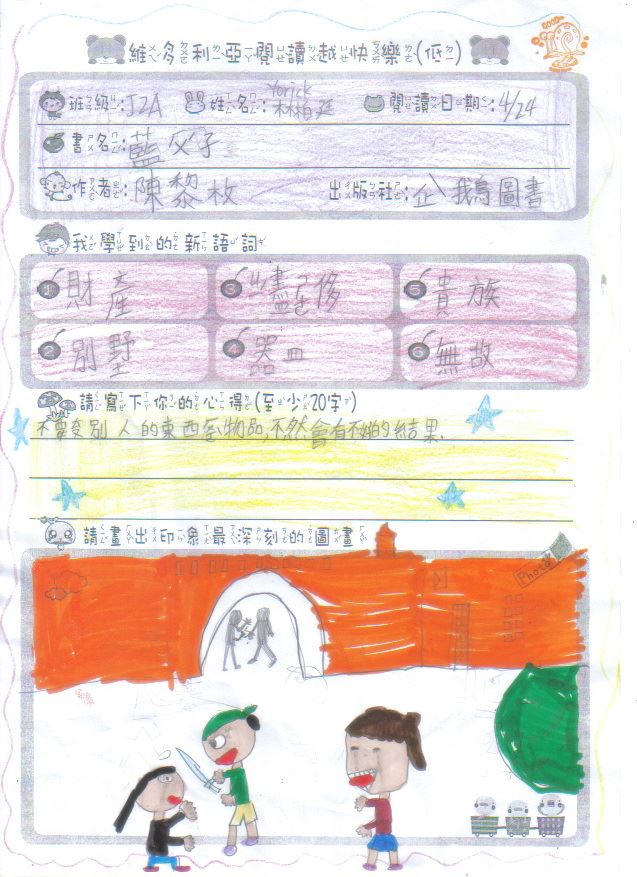 維多利亞閱讀越快樂(低)
班級:J2A 姓名:Yorick 林柏廷 閱讀日期:4/24
書名:藍父子
作者:陳黎枚 出版社:企鵝圖書
我學到的新語詞
1 財產 3 5 貴族
2 別墅 4 器皿 6 無故
請寫下你的心得(至少20字)
不要 別人的東西 物品,不然會有不好的結果.
請畫出印象最深刻的圖畫
Photo